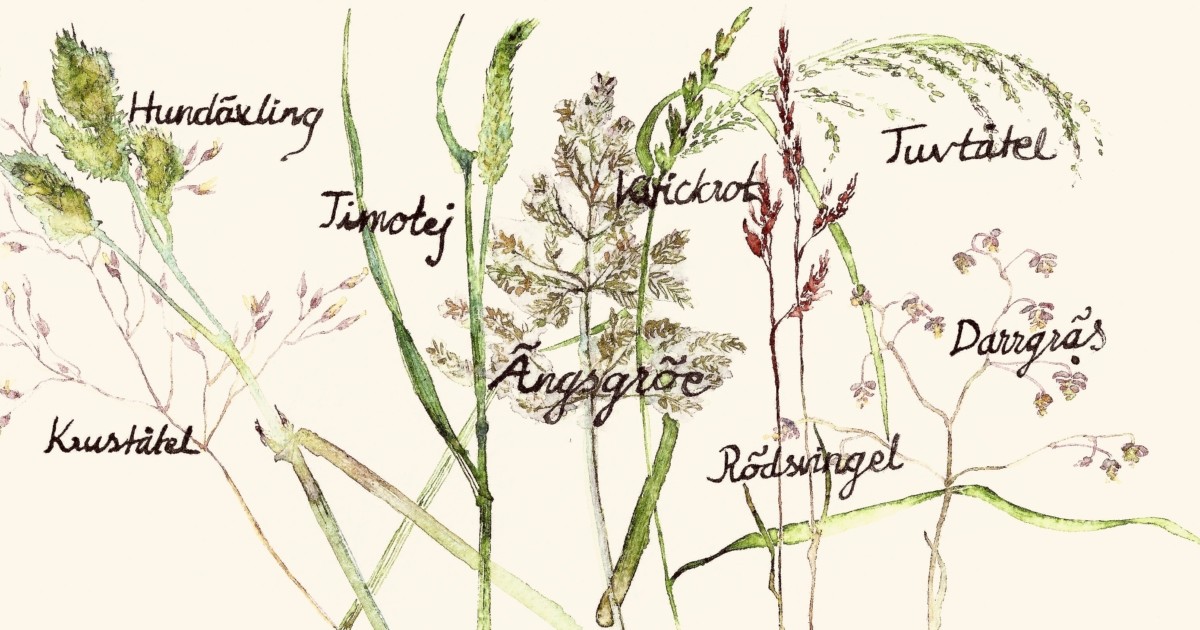 Hundäxling
Tuvtåtel
Timotej
Kvickrot
Darrgräs
Ängsgröe
Kruståtel
Rödsvingel